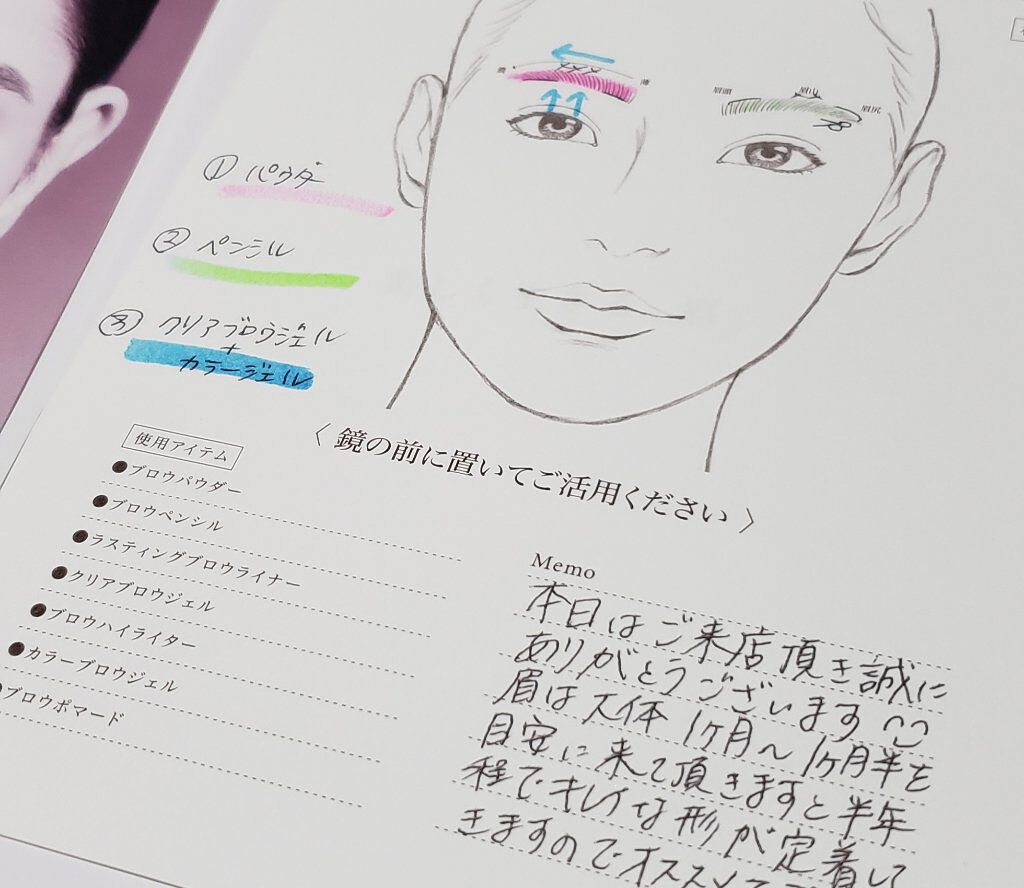 眉頭
眉山
眉尻
① パウダー
② ペンシル
③ クリアブロウジェル
+
カラージェル
〈 鏡の前に置いてご活用ください 〉
使用アイテム
●ブロウパウダー
●ブロウペンシル
●ラスティングブロウライナー
●クリアブロウジェル
●ブロウハイライター
●カラーブロウジェル
●ブロウポマード
Memo
本日はご来店頂き誠に
ありがとうございます
眉は大体 1ヶ月〜1ヶ月半を
目安に来て頂きますと半年
程でキレイな形が定着して
きますのでオススメです